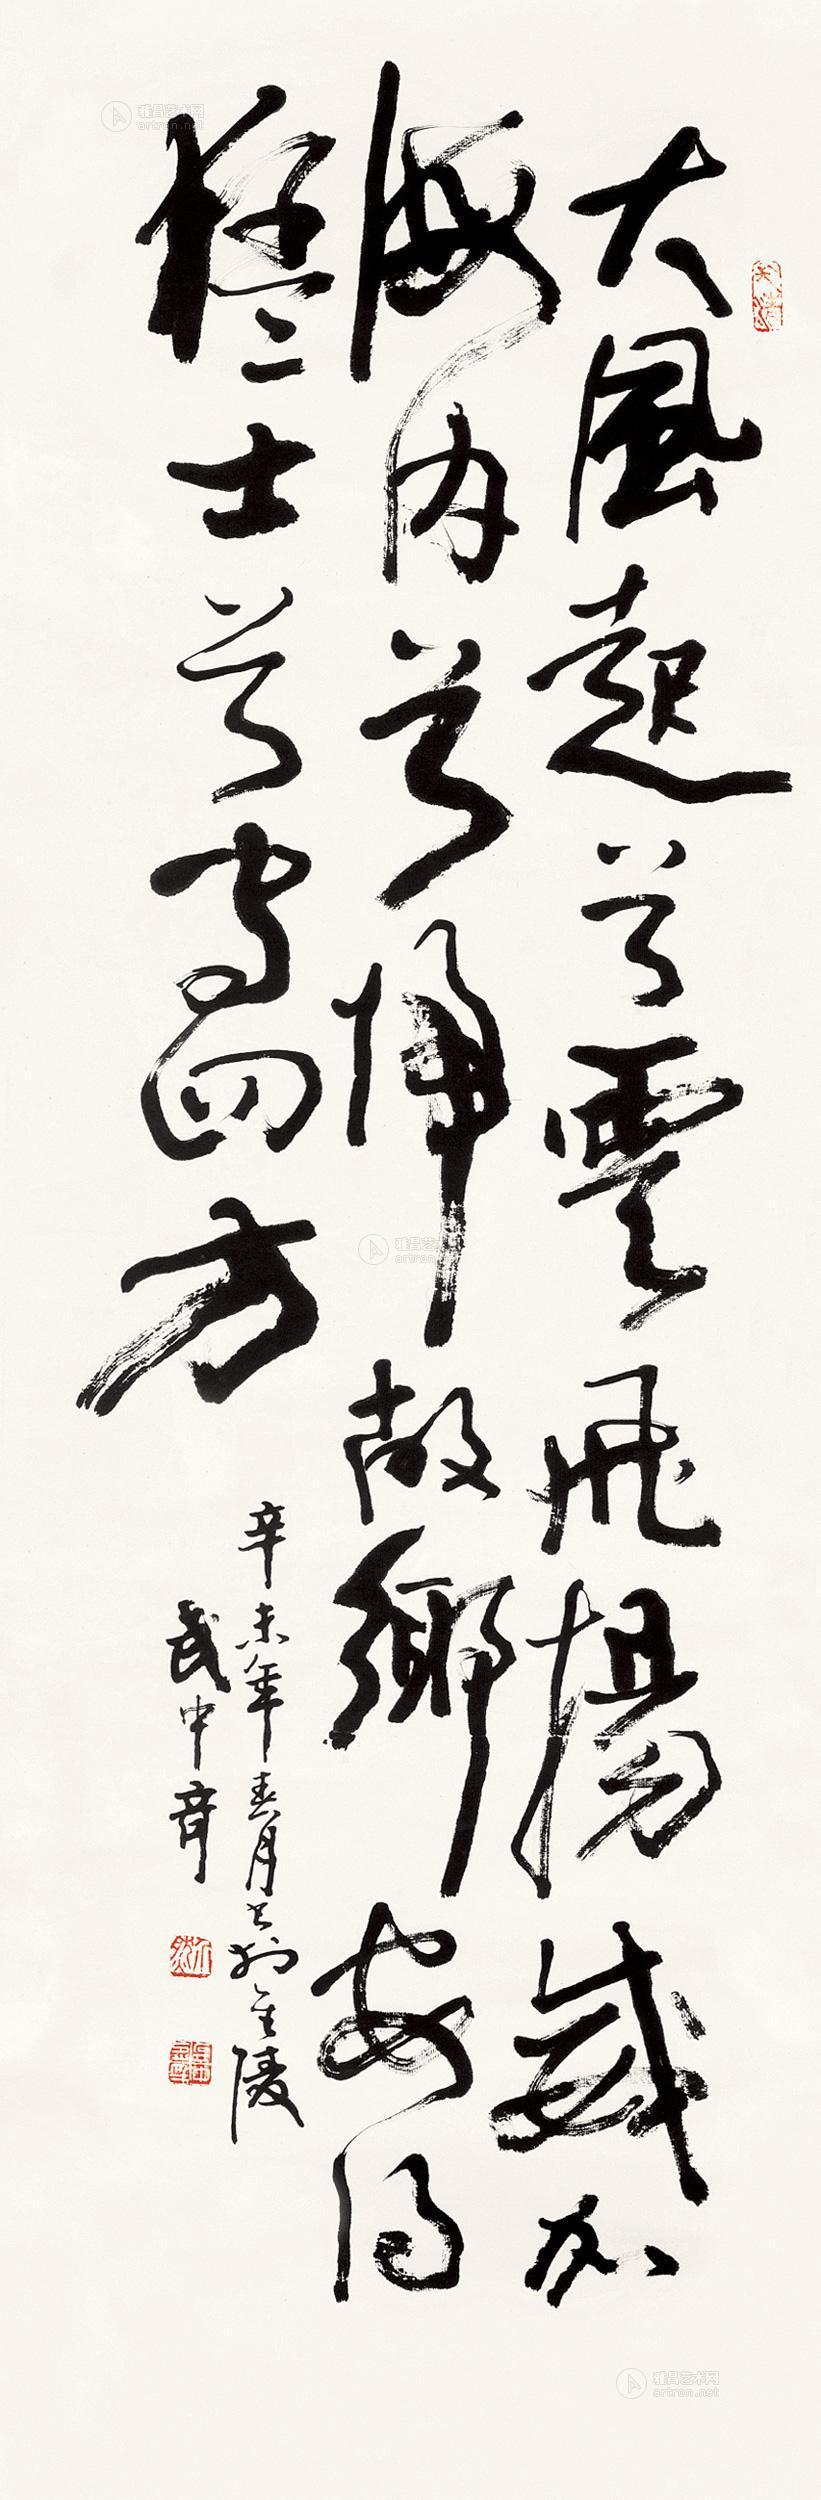 大風起兮雲飛揚威加
海内兮歸故鄉安得
猛士兮守四方
辛未年春月書於金陵
武中奇
雅昌艺术网
artron.net
雅昌艺术网
artron.net
雅昌艺术网
artron.net